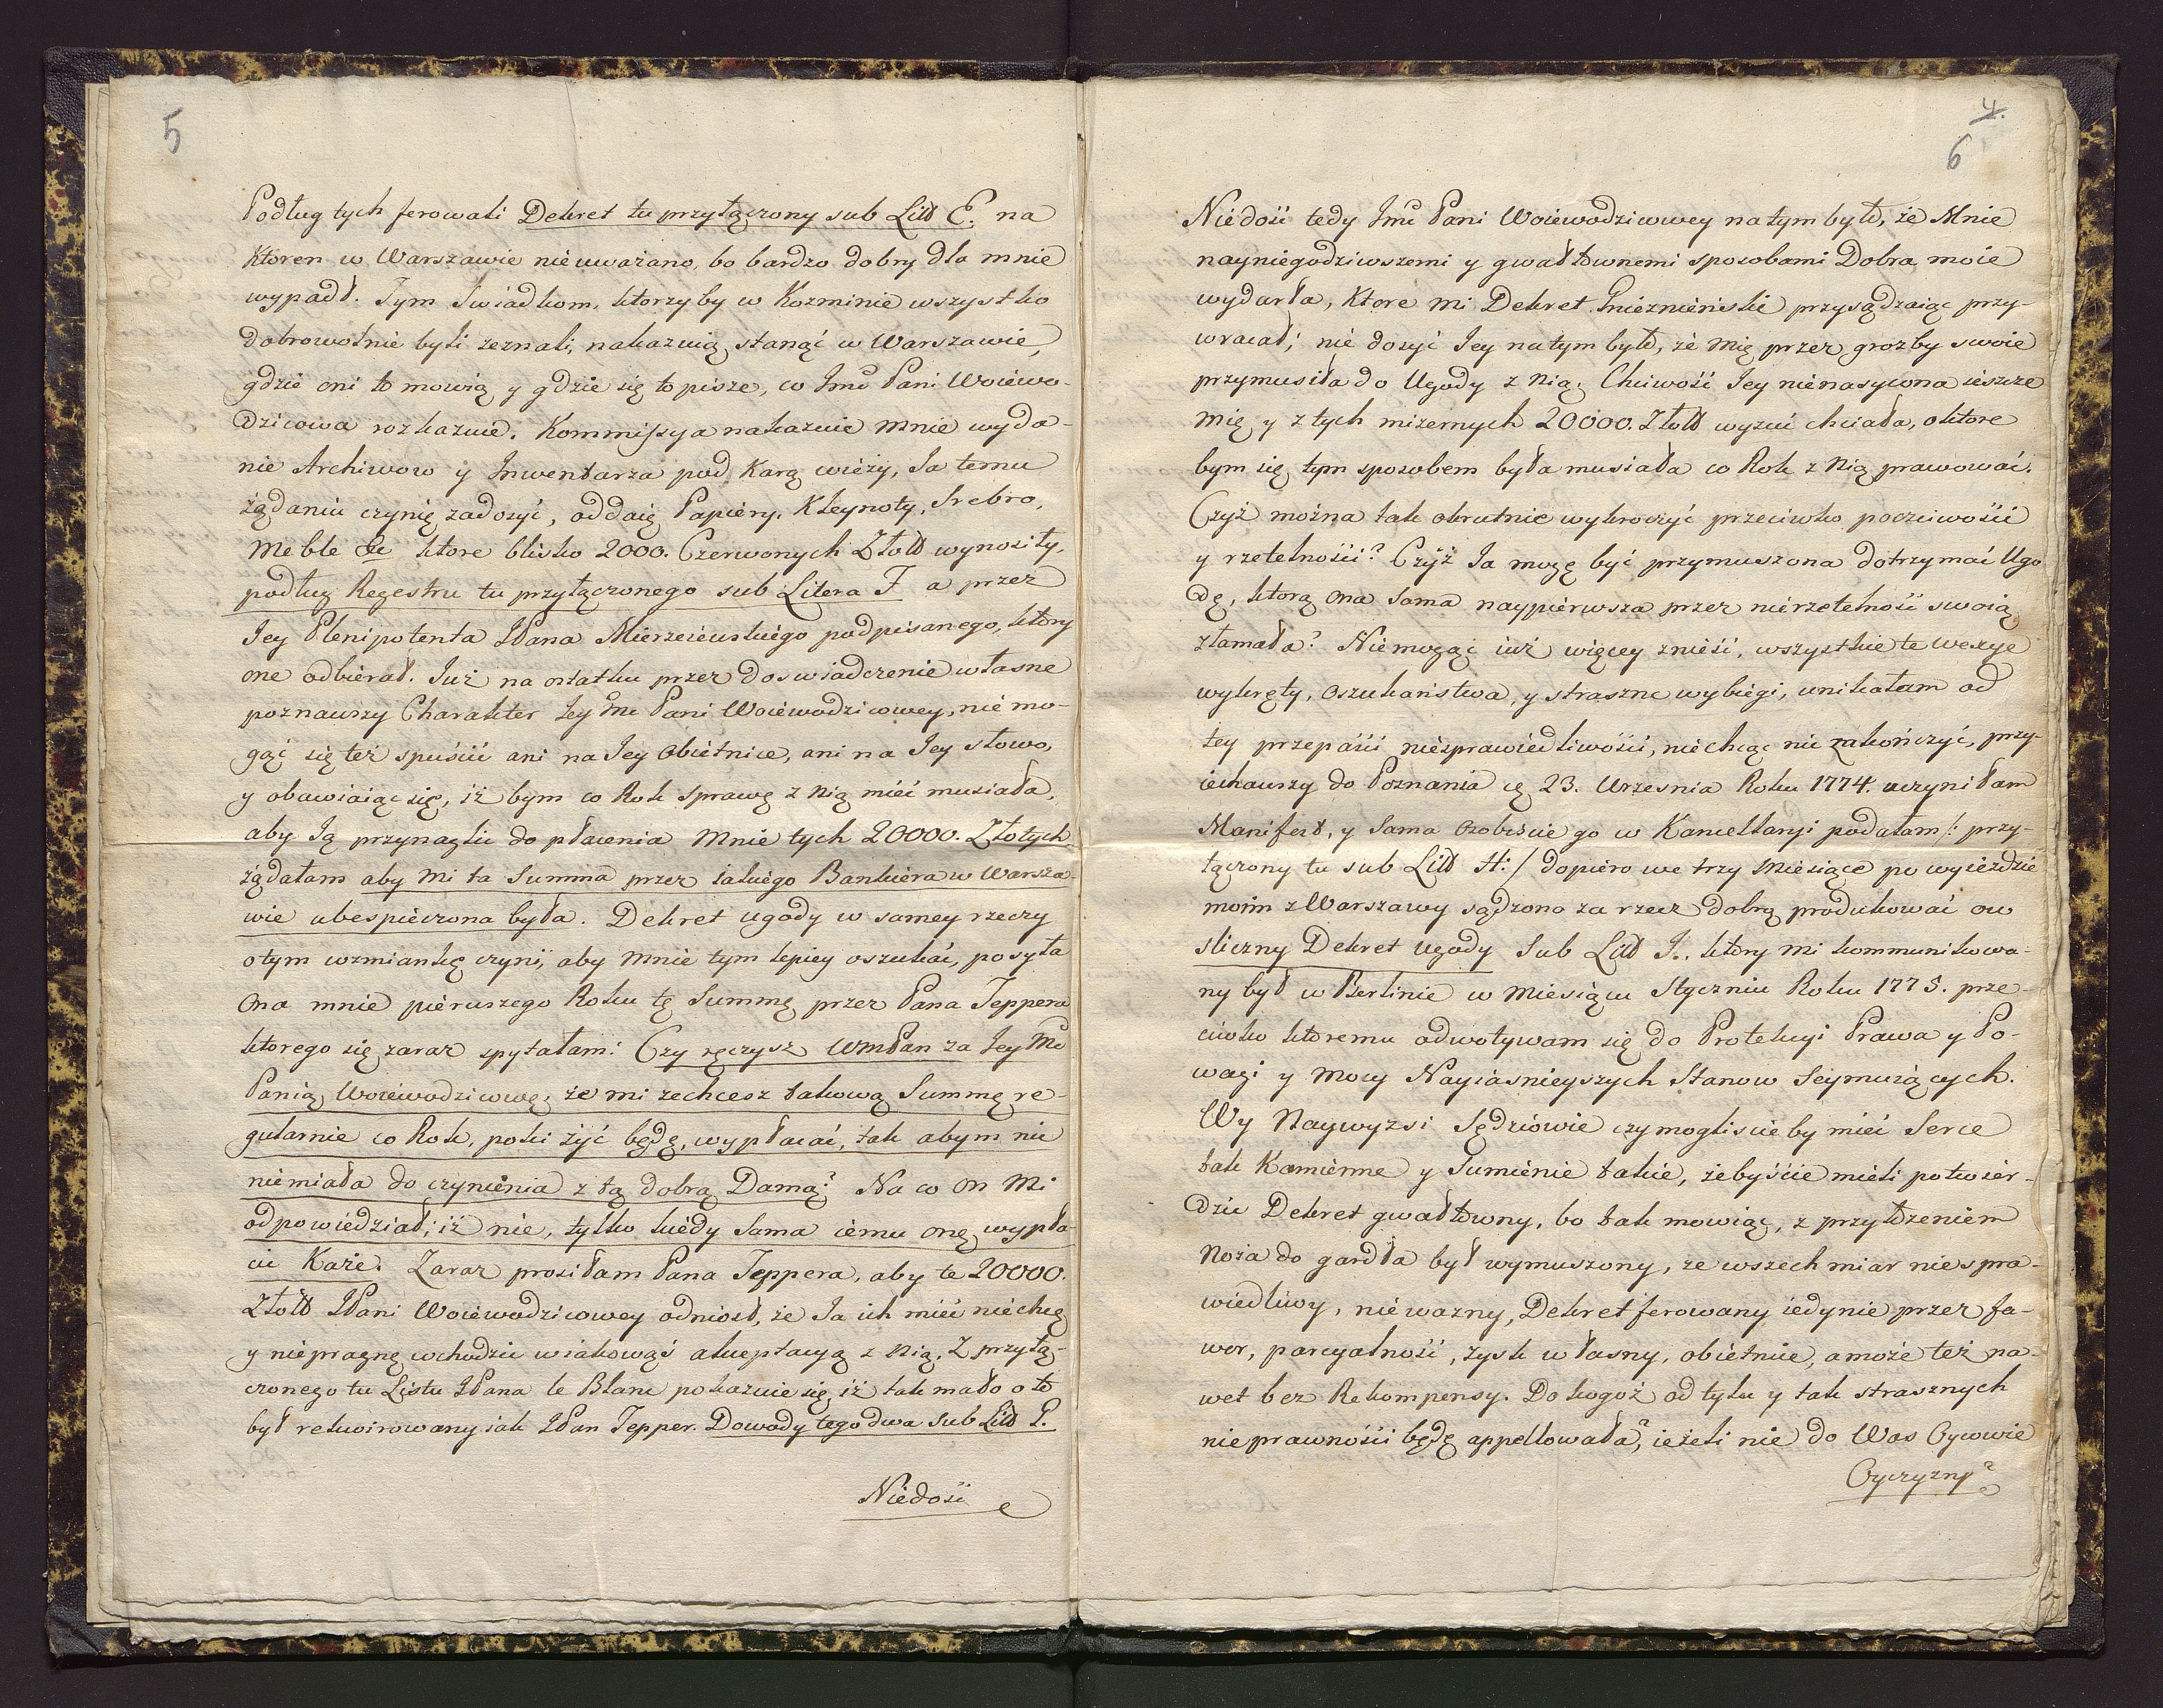 5
Podług tych ferowali Dekret tu przyłączony sub Litt E. na
Ktoren w Warszawie nieuważano, bo bardzo dobry dla mnie
wypadł. Tym Swiadkom, ktorzy by w Kozminie wszystko
dobrowolnie byli zeznali, nakazuią stanąć w Warszawie,
gdzie oni to mowią y gdzie się to pisze, co Jmć Pani Woiewo-
dzicowa rozkazuie. Kommissya nakazuie mnie wyda-
nie Archiwow y Inwentarza pod Karą wieży, Ja temu
żądaniu czynię zadosyć, oddaię Papiery, Kleynoty, Srebro,
Meble &c ktore blisko 2000. Czerwonych Złott wynosiły,
podług Regestru tu przyłączonego sub Litera F a przez
Jey Plenipotenta JPana Mierzeiewskiego podpisanego, ktory
one odbierał. Już na ostatku przez doswiadczenie własne
poznawszy Charakter Jey Mć Pani Woiewodzicowey, nie mo-
gąć się też spuścić ani na Jey Obietnice, ani na Jey słowo,
y obawiaiąc się, iż bym co Rok Sprawę z Nią mieć musiała,
aby Ją przynaglić do płacenia Mnie tych 20000. Złotych
żądałam aby mi ta Summa przez iakiego Bankiera w Warsza-
wie ubespieczona była. Dekret ugody w samey rzeczy
o tym wzmiankę czyni, aby Mnie tym lepiey oszukać, posyła
Ona mnie pierwszego Roku tę Summę przez Pana Teppera
ktorego się zaraz spytałam: Czy ręczysz WmPan za Jey Mć
Panią Woiewodzicowę, że mi zechcesz takową Summę re-
gularnie co Rok, poki żyć będę, wypłacać, tak abym nic
niemiała do czynienia z tą dobrą Damą? Na co On Mi
odpowiedział, iż nie, tylko kiedy Sama iemu onę wypła-
cić Każe. Zaraz prosiłam Pana Teppera, aby te 20000.
Złott JPani Woiewodzicowey odniosł, że Ja ich mieć niechcę
y niepragnę wchodzić w iakowąś akceptacyą z Nią. Z przyłą-
czonego tu Listu JPana le Blanc pokazuie się iż tak mało o to
był rekwirowany iak JPan Tepper. Dowody tego dwa sub Litt P.
Niedość
4.
6
Niedość tedy Jmć Pani Woiewodzicowey na tym było, że Mnie
nayniegodziwszemi y gwałtownemi sposobami Dobra moie
wydarła, Ktore mi Dekret Gnieznieński przysądzaiąc przy-
wracał; nie dosyć Jey na tym było, że Mię przez grozby swoie
przymusiła do Ugody z Nią. Chciwość Jey nienasycona ieszcze
Mię y z tych mizernych 20000. Złott wyzuć chciała, o ktore
bym się tym sposobem była musiała co Rok z Nią prawować.
Czyż można tak okrutnie wykroczyć przeciwko poczciwości
y rzetelności? Czyż Ja mogę być przymuszona dotrzymać Ugo
dę, ktorą Ona Sama naypierwsza przez nierzetelność swoią
złamała? Niemogąc iuż więcey znieść, wszystkie te wexye
wykręty, oszukaństwa, y straszne wybiegi, unikałam od
tey przepaści niesprawiedliwości, niechcąc nic zakończyć, przy-
iechawszy do Poznania ię 23. Wrzesnia Roku 1774. uczyniłam
Manifest, y Sama Ozobiscie go w Kancellaryi podałam /: przy-
łączony tu sub Litt H: / dopiero we trzy Miesiące po wyieździe
moim z Warszawy sądzono za rzecz dobrą produkować ow
sliczny Dekret Ugody Sub Litt J. ktory mi kommunikowa-
ny był w Berlinie w Miesiącu Styczniu Roku 1775. prze-
ciwko ktoremu odwoływam się do Protekcyi Prawa y Po-
wagi y Mocy Nayiasnieyszych Stanow Seymuiących.
Wy Naywyzsi Sędziowie czy mogliscie by mieć Serce
tak Kamienne y Sumienie takie, żebyście mieli potwier-
dzić Dekret gwałtowny, bo tak mowiąc, z przyłożeniem
Noża do gardła był wymuszony, ze wszech miar niespra-
wiedliwy, nieważny, Dekret ferowany iedynie przez fa-
wor, parcyalność, zysk własny, obietnice, a może też na-
wet bez Rekompensy. Do kogoż od tylu y tak strasznych
nieprawności będę appellowała, ieżeli nie do Was Oycowie
Oyczyzny?